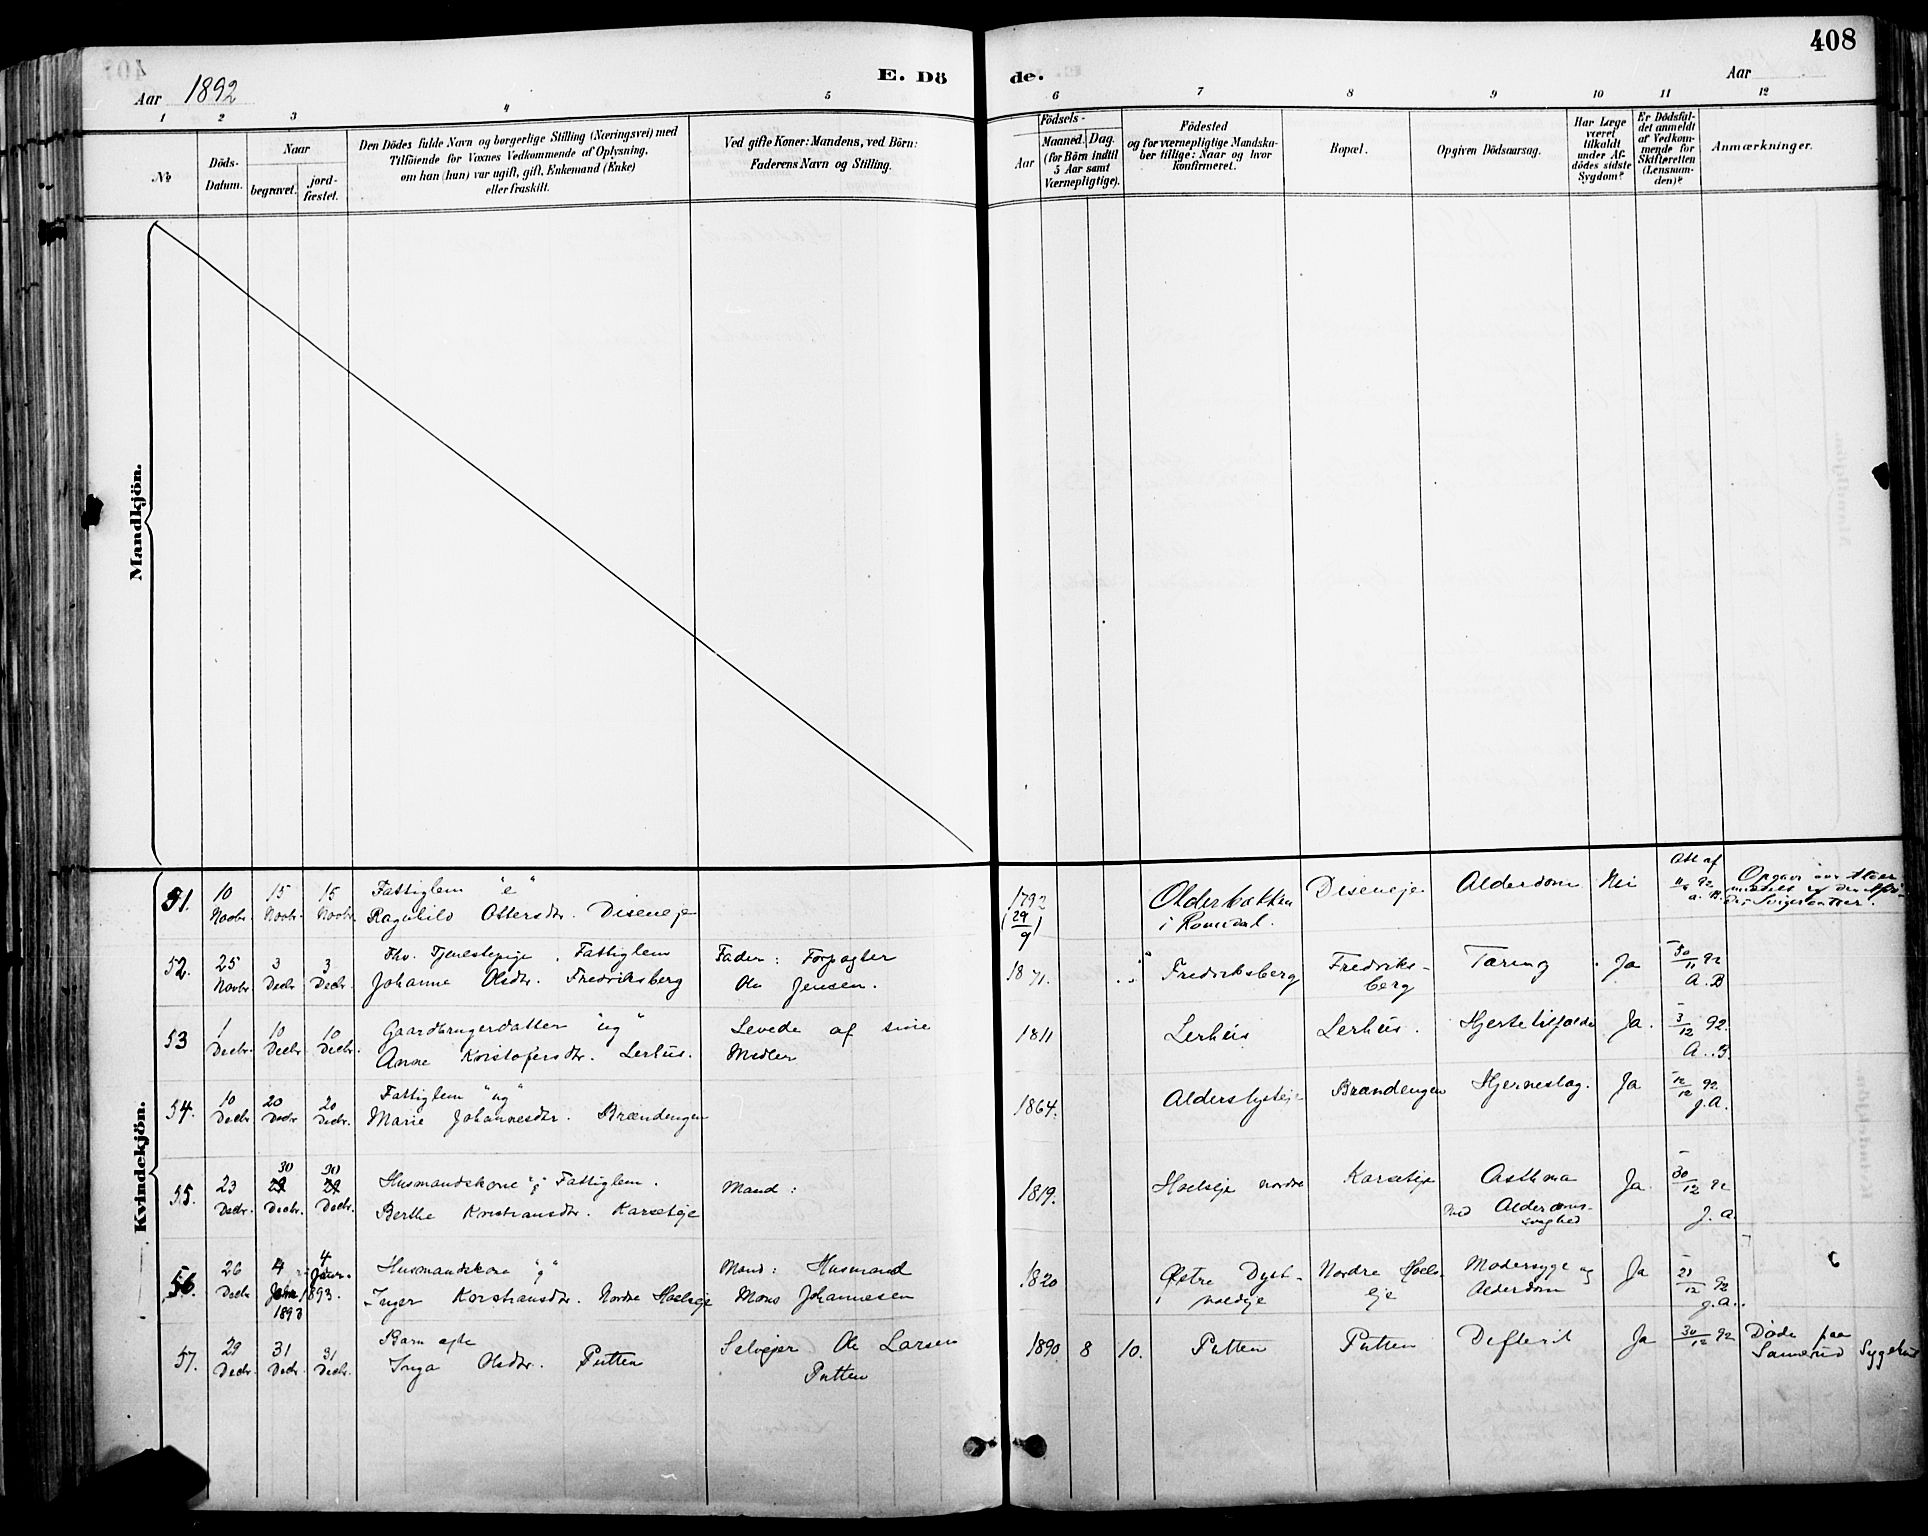 408
E. Dö
de.
Aar 1892
Aar
1 2 3 4 5 6 7 8 9 10 11 12
No
Döds-
Datum.
Naar
begravet.
jord-
fæstet.
Den Dödes fulde Navn og borgerlige Stilling (Næringsvei) med
Tilföiende for Voxnes Vedkommende af Oplysning,
om han (hun) var ugift, gift, Enkemand (Enke)
eller fraskilt.
Ved gifte Koner: Mandens, ved Börn:
Faderens Navn og Stilling.
Födsels-
Aar
Maaned.
Dag.
(for Börn indtil
5 Aar samt
Værnepligtige).
Födested
og for værnepligtige Mandska-
ber tillige: Naar og hvor
konfirmeret.
Bopæl.
Opgiven Dödsaarsag.
Har Læge
været
tilkaldt
under Af-
dödes sidste
Sygdom?
Er Dödsfal-
det anmeldt
af Vedkom-
mende for
Skifteretten
(Lensman-
den)?
Anmærkninger.
Mandkjön.
Kvindekjön.
51. 10 Novbr. 15 Novbr. 15 Novbr. Fattiglem "e"
Ragnhild Ottersdtr. Diseneje
1792 (29/9)
i Romsdal.
Diseneje Alderdom Nei
52. 25 Novbr. 3 Decbr. 3 Decbr. Fhv. Tjenestepige, Fattiglem
Johanne Olsdtr. Fredriksberg
Fader: Forpagter
Ole Jensen.
1871. Fredriksberg Fredriks-
berg
Tæring Ja 30/11 92
A. B
53 1 Decbr. 10 Decbr. 10 Decbr. Gaardbrugerdatter "ug"
Anne Kristofersdtr. Lerhus.
Levede af sine
Midler
1811 Lerhus Lerhus. Hjertetilfælde Ja. 3/12 92.
A. B.
54. 10 Decbr. 20 Decbr. 20 Decbr. Fattiglem "ug"
Marie Johannesdtr. Brændengen
1864. Alderslysteje Brændengen Hjerneslag. Ja 12/12 92
J. A.
55. 23 Decbr. 30 Decbr. 30 Decbr. Husmandskone "g" Fattiglem.
Berthe Kristiansdtr. Karseteje
Mand:
1819. Hoelseje nordre Karseteje Asthma
med Alderdoms-
svaghed
Ja 30/12 92
J. A.
56. 26 Decbr 4 Janr. 1893 4 Janr. 1893. Husmandskone "g"
Inger Kristiansdtr. Nordre Hoelseje
Mand: Husmand
Mons Johannesen
1820 Østre Dyst-
voldeje
Nordre Hoels-
eje
Modersyge og
Alderdom
Ja
J. A.
57. 29 Decbr. 31 Decbr. 31 Decbr. Barn ægte
Inga Olsdtr. Putten
Selvejer Ole Larsen
Putten
1890 8 10. Putten Putten Difterit Ja 30/12 92 Døde paa
Sanerud Sygehus